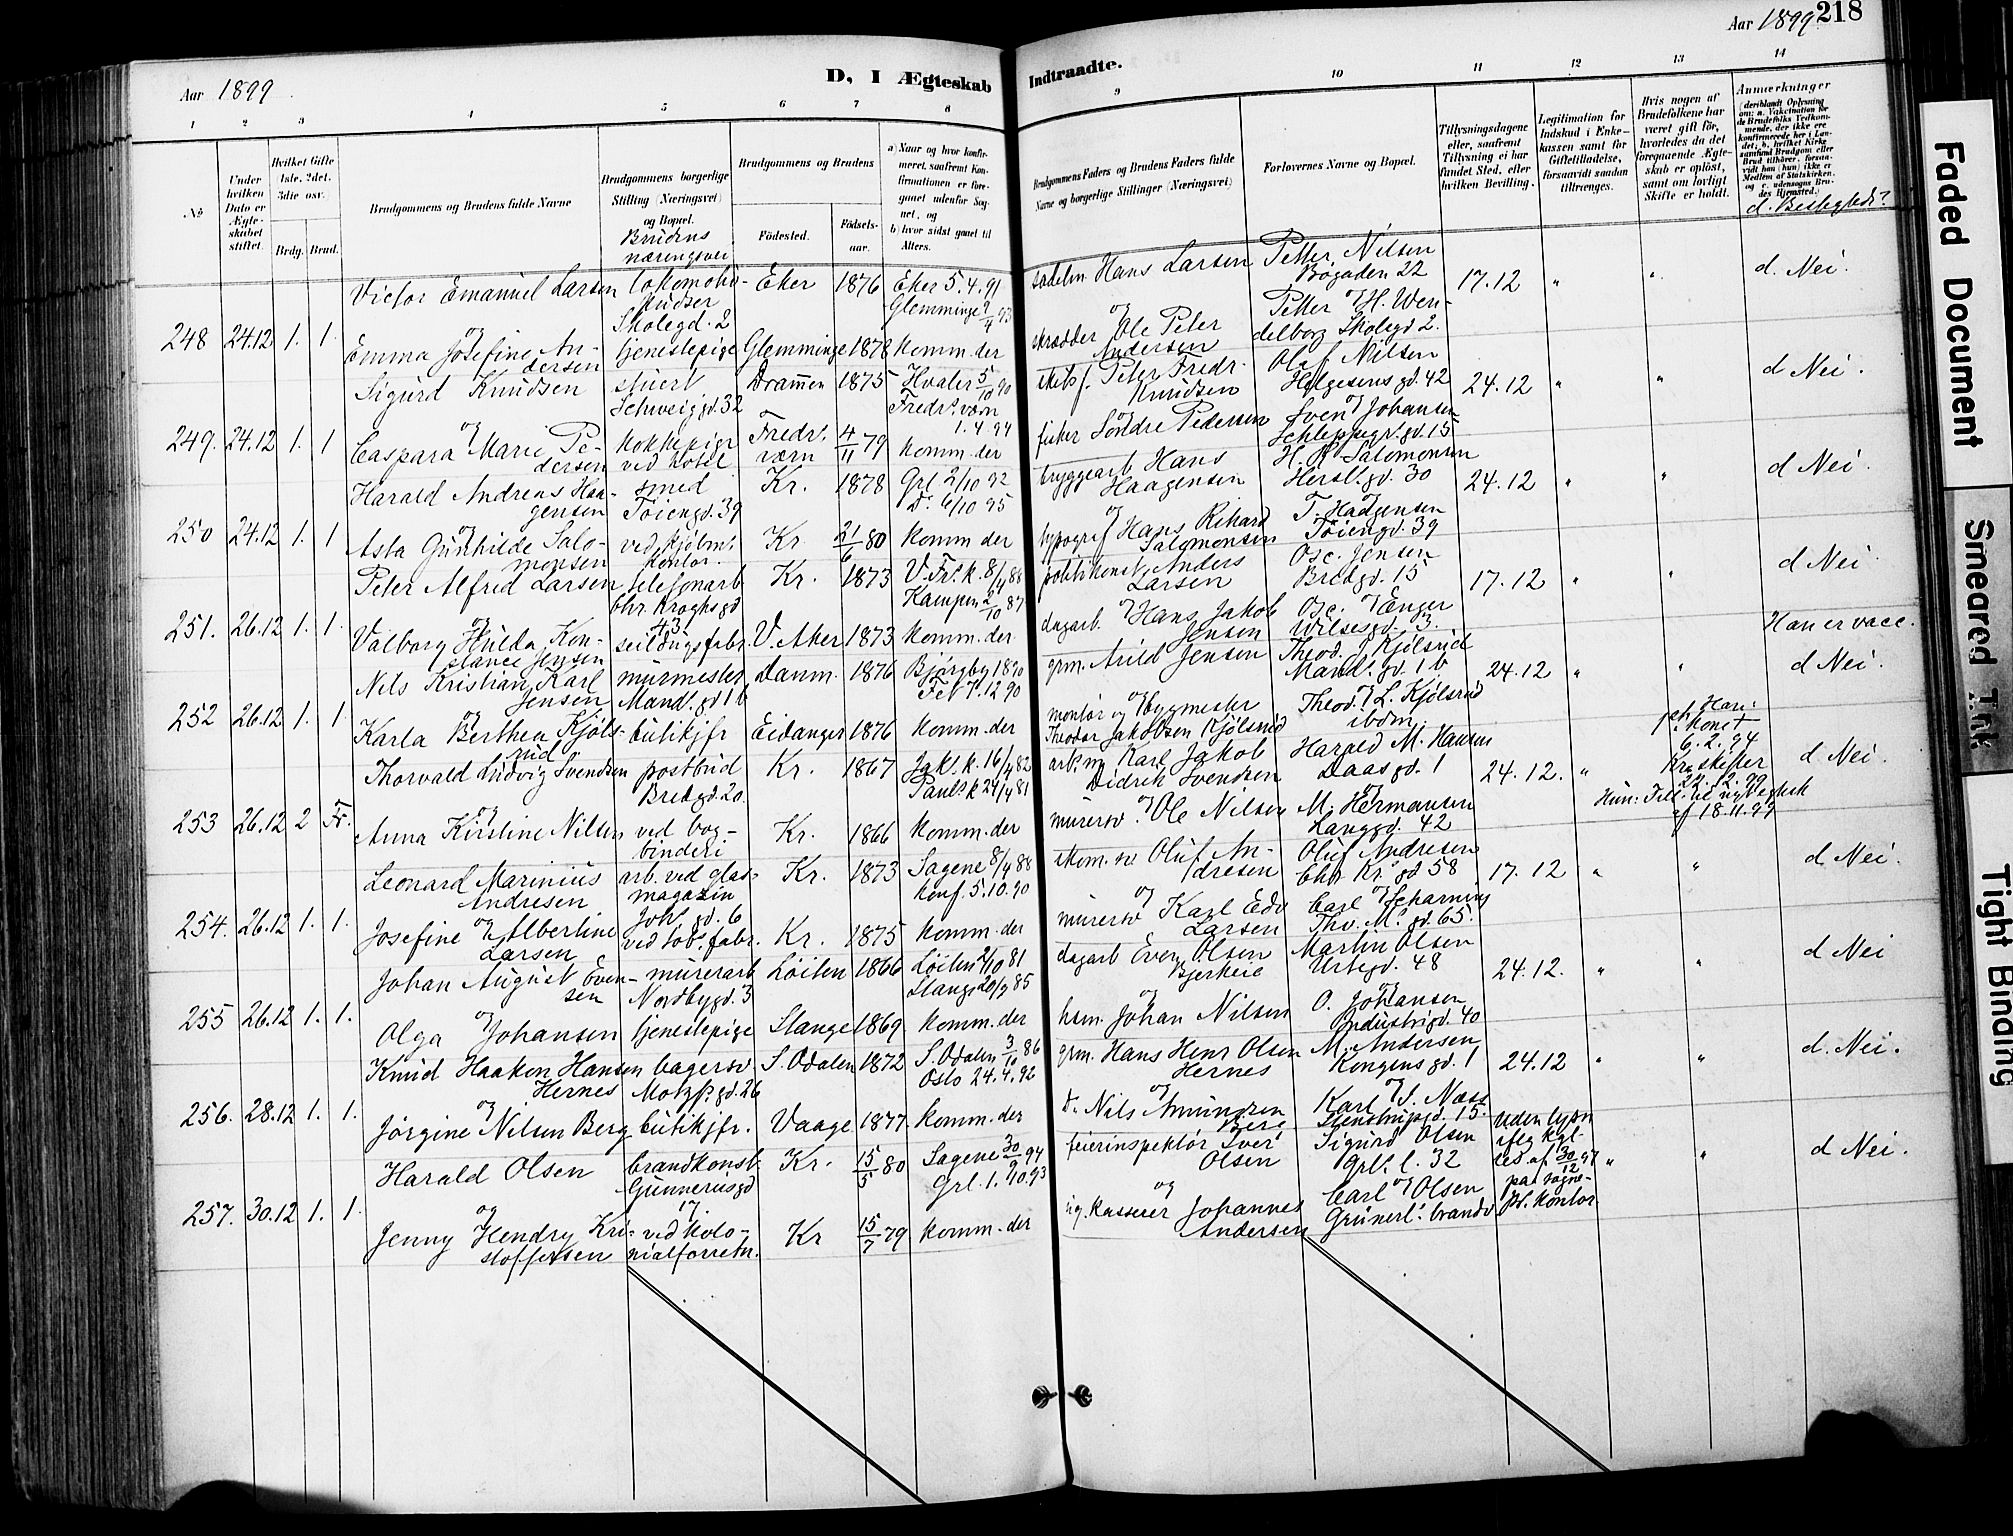 Aar 1899
D, I Ægteskab
Indtraadte.
Aar 1899
218
1 2 3 4 5 6 7 8 9 10 11 12 13 14
No
Under hvilken Dato er Ægteskabet stiftet.
Hvilket Gifte 1ste, 2det, 3die osv.
Brdg. Brud.
Brudgommens og Brudens fulde Navne
Brudgommens borgerlige Stilling (Næringsvei) og Bopæl.
Brudens næringsvei
Brudgommens og Brudens
Fødested. Fødselsaar.
a) Naar og hvor konfirmeret, saafremt Konfirmationen er foregaaet udenfor Sognet, og
b) hvor sidst gaaet til Alters.
Brudgommens Faders og Brudens Faders fulde Navne og borgerlige Stillinger (Næringsvei)
Forlovernes Navne og Bopæl.
Tillysningsdagene eller, saafremt Tillysning ei har fundet Sted, efter hvilken Bevilling.
Legitimation for Indskud i Enkekassen samt for Giftetilladelse, forsaavidt saadan tiltrænges.
Hvis nogen af Brudefolkene har været gift før, hvorledes da det foregaaende Ægteskab er opløst, samt om lovligt Skifte er holdt.
Anmærkninger
d. Beslægtede?
248 24.12 1. 1.
Victor Emanuel Larsen
lokomotivpudser
Skolegd. 2
Eker 1876
Eker 5.4.91
Glemminge
sadelm. Hans Larsen
Petter Nilsen
Bøgaden 22
17.12 " "
d. Nei.
og
Emma Josefine Andersen
tjenestepige
Glemminge 1878
komm. der
skrædder Ole Peter Andersen
Petter H. Wendelborg Skolegd 2.
249. 24.12 1. 1
Sigurd Knudsen
stuert
Schweigd. 32
Drammen 1875
Hvaler 5/10 90
Fredr.værn
1.4.94
skibsf. Peter Fredr. Knudsen
Olaf Nilsen
Helgesens gd. 42
24.12 " "
d Nei.
og
Caspara Marie Pedersen
kokkepige
ved hotel
Fredr.værn 4/11 79
komm. der
fisker Søndre Pedersen
Sven Johansen
Schleppegr. gd. 15
250 24.12 1. 1
Harald Andreas Haagensen
smed
Tøiengd. 39
Kr. 1878
Grl 2/10 92
D. 6/10 95
bryggearb Hans Haagensen
H. R Salomonsen
Hersl. gd. 30
24.12 " "
d Nei.
og
Asta Gunhilde Salomonsen
ved kjøbm. kontor.
Kr 21/6 80
komm der
typograf Hans Rikard Salomonsen
T. Haagensen
Tøiengd. 39
251. 26.12 1. 1.
Peter Alfred Larsen
telefonarb
Chr. Kroghsgd 43
Kr. 1873
V. Fr. k. 8/4 88
Kampen 2/10 87
politikonst. Anders Larsen
Osc. Jensen
Bredgd. 15
17.12 " "
d Nei
og
Valborg Hulda Konstance Jensen
seildugsfabr.
V. Aker 1873
komm. der
dagarb. Hans Jakob Jensen
Osc. Enger
Wilsesgd. 3.
Han er vacc.
252 26.12 1. 1.
Nils Kristian Karl Jensen
murmester
Mandl. gd 1 b
Danm. 1876
Bjørgby 1890
Fet 7.12 90
grm. Arild Jensen
Theod. J. Kjølsrud
Mandl. gd. 1 b
24.12 " "
d Nei.
og
Karla Berthea Kjølsrud
butikjfr
Eidanger 1876
komm. der
montør og bygmester
Theodor Jakobsen Kjølsrud
Theod. L. Kjølsrud
ibdm.
253 26.12 2 Fr.
Thorvald Ludvig Svendsen
postbud
Bredgd. 20.
Kr. 1867
Jak. k. 16/4 82
Paul. k 24/4 81
arb.m Karl Jakob Didrik Svendsen
Harald M. Hansen
Daasgd. 1
24.12. "
Han: 1ste kone †
6.2.94
Kra skifter
22.12.99
d Nei.
og
Anna Kirstine Nilsen
ved bogbinderi
Kr. 1866
komm. der
murersv. Ole Nilsen
M. Hermansen
Langgd. 42
Hun: Till. til nyt Ægtesk
af 18.11.99
254. 26.12 1. 1.
Leonard Marinius Andresen
arb. ved glasmagasin
Joh. gd. 6
Kr. 1873
Sagene 8/4 88
konf. 5.10.90
skom. sv Oluf Andresen
Oluf Andresen
Chr. Kr. gd 58
17.12 " "
d Nei.
og
Josefine Albertine Larsen
ved tob. fabr.
Kr. 1875
komm. der
murersv Karl Edv Larsen
Carl Scharning
Thv. M. gd. 65.
255 26.12 1. 1.
Johan August Evensen
murerarb
Nordbygd. 3
Løiten 1866
Løiten 2/10 81
Stange 20/9 85
dagarb Even Olsen Bjerkeie
Martin Olsen
Urtegd. 48
24.12. " "
d Nei
og
Olga Johansen
tjenestepige
Stange 1869
komm. der
hsm. Johan Nilsen
O. Johansen
Industrigd. 40
256. 28.12 1. 1.
Knud Haakon Hansen Hernes
bagersv
Motzf. gd. 26
S. Odalen 1872
S. Odalen 3/10 86
Oslo 24.4.92
grm. Hans Henr Olsen Hernes
M. Andersen
Kongens gd. 1
24.12 " "
d. Nei.
og
Jørgine Nilsen Berg
butikjfr.
Vaage 1877
komm. der
D. Nils Amundsen Berg
Karl S. Næss
Stenstrupgd. 15.
257. 30.12 1. 1.
Harald Olsen
brandkonst.
Gunnerusgd 17
Kr. 15/5 80
Sagene 30/9 94
Grl. 1/10.93
feierinspektør Iver Olsen
Sigurd Olsen
Grl. l. 32
Uden lysn
ifølg kgl.
res af 30/12 97
paa sogne-
pr. kontor
" "
d Nei.
og
Jenny Hendry Kristoffersen
ved kolonialforretn.
Kr 15/7 79
komm. der
kasserer Johannes Andersen
Carl Olsen
Grünerl. brandv
Faded Document
Smeared Ink
Tight Binding